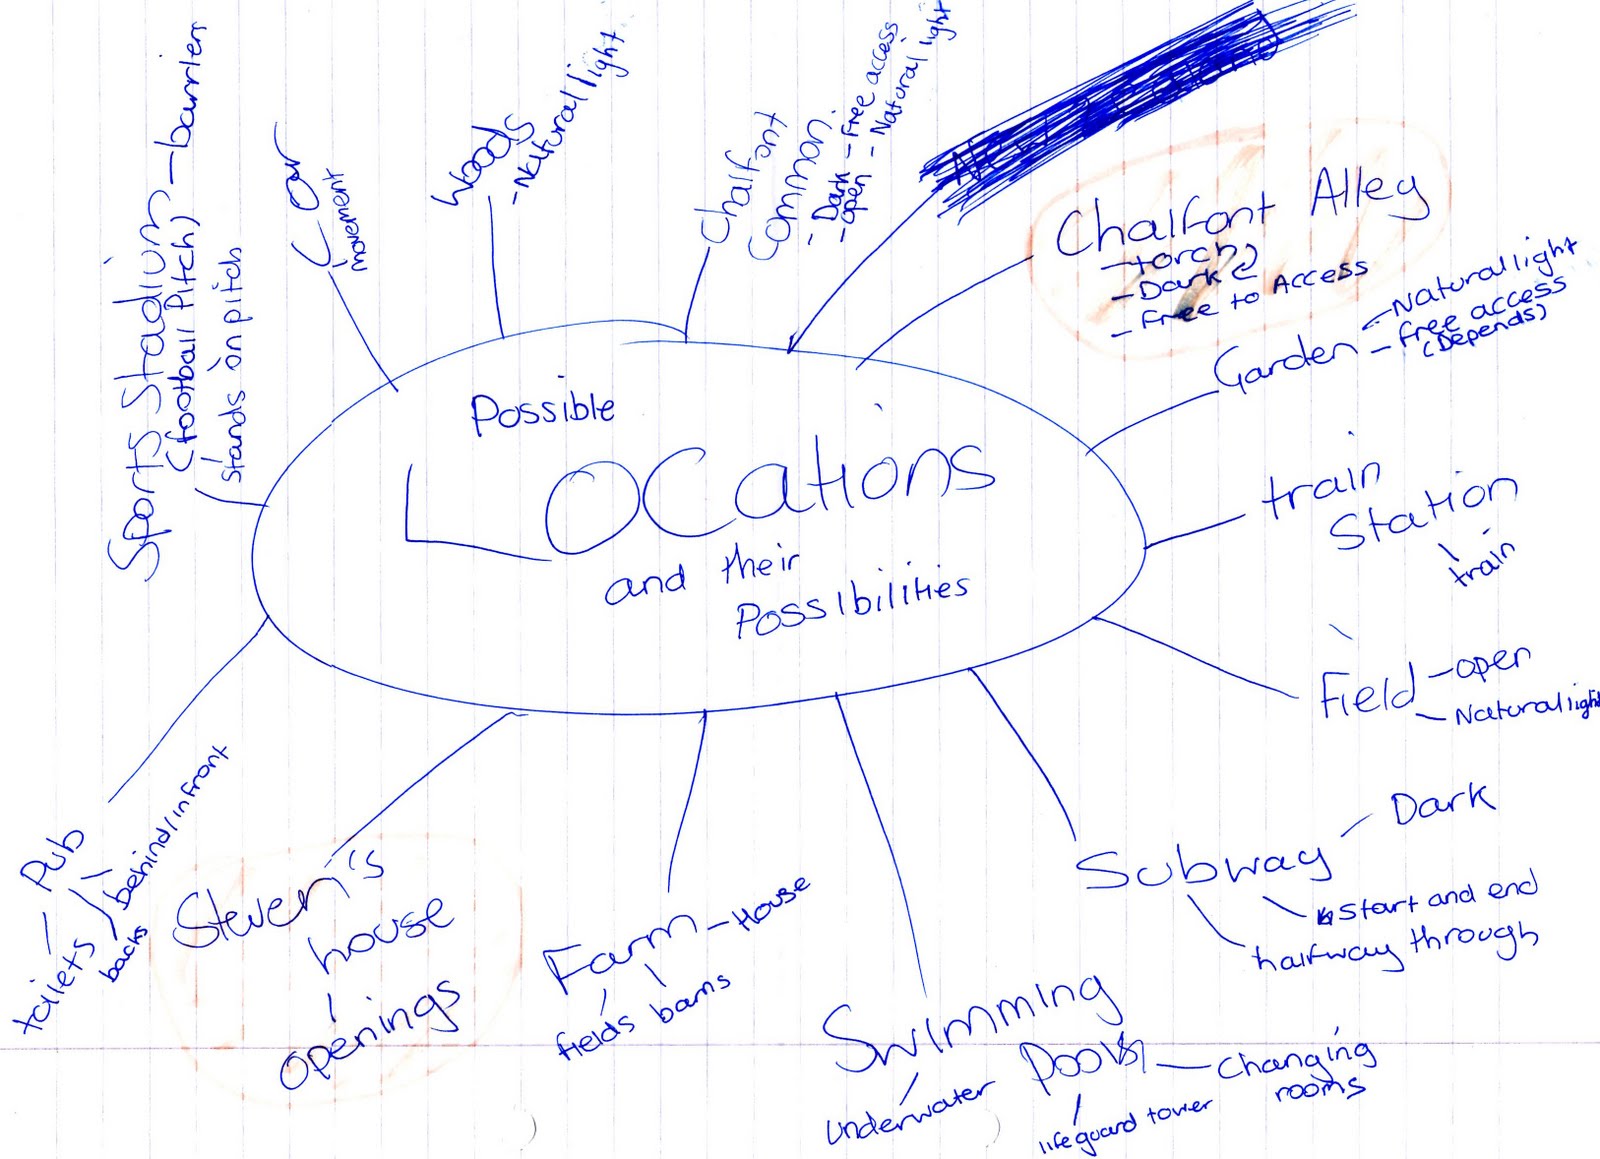 Possible
LOCations
and their
Possibilities
Sports Stadium - barriers
(football Pitch)
stands on pitch
Car
movement
Woods
- Natural light
Chalfont
Common
- Dark - Free access
- open - Natural light
Chalfont Alley
- torch
- Dark
- Free to Access
Garden
- Natural light
- free access
(Depends)
train
Station
train
Field - open
- Natural light
Subway
Dark
start and end
halfway through
Swimming
Pools
Changing
rooms
underwater
lifeguard tower
Farm - House
fields barns
Steven's
house
openings
Pub
toilets
behind/infront
backs